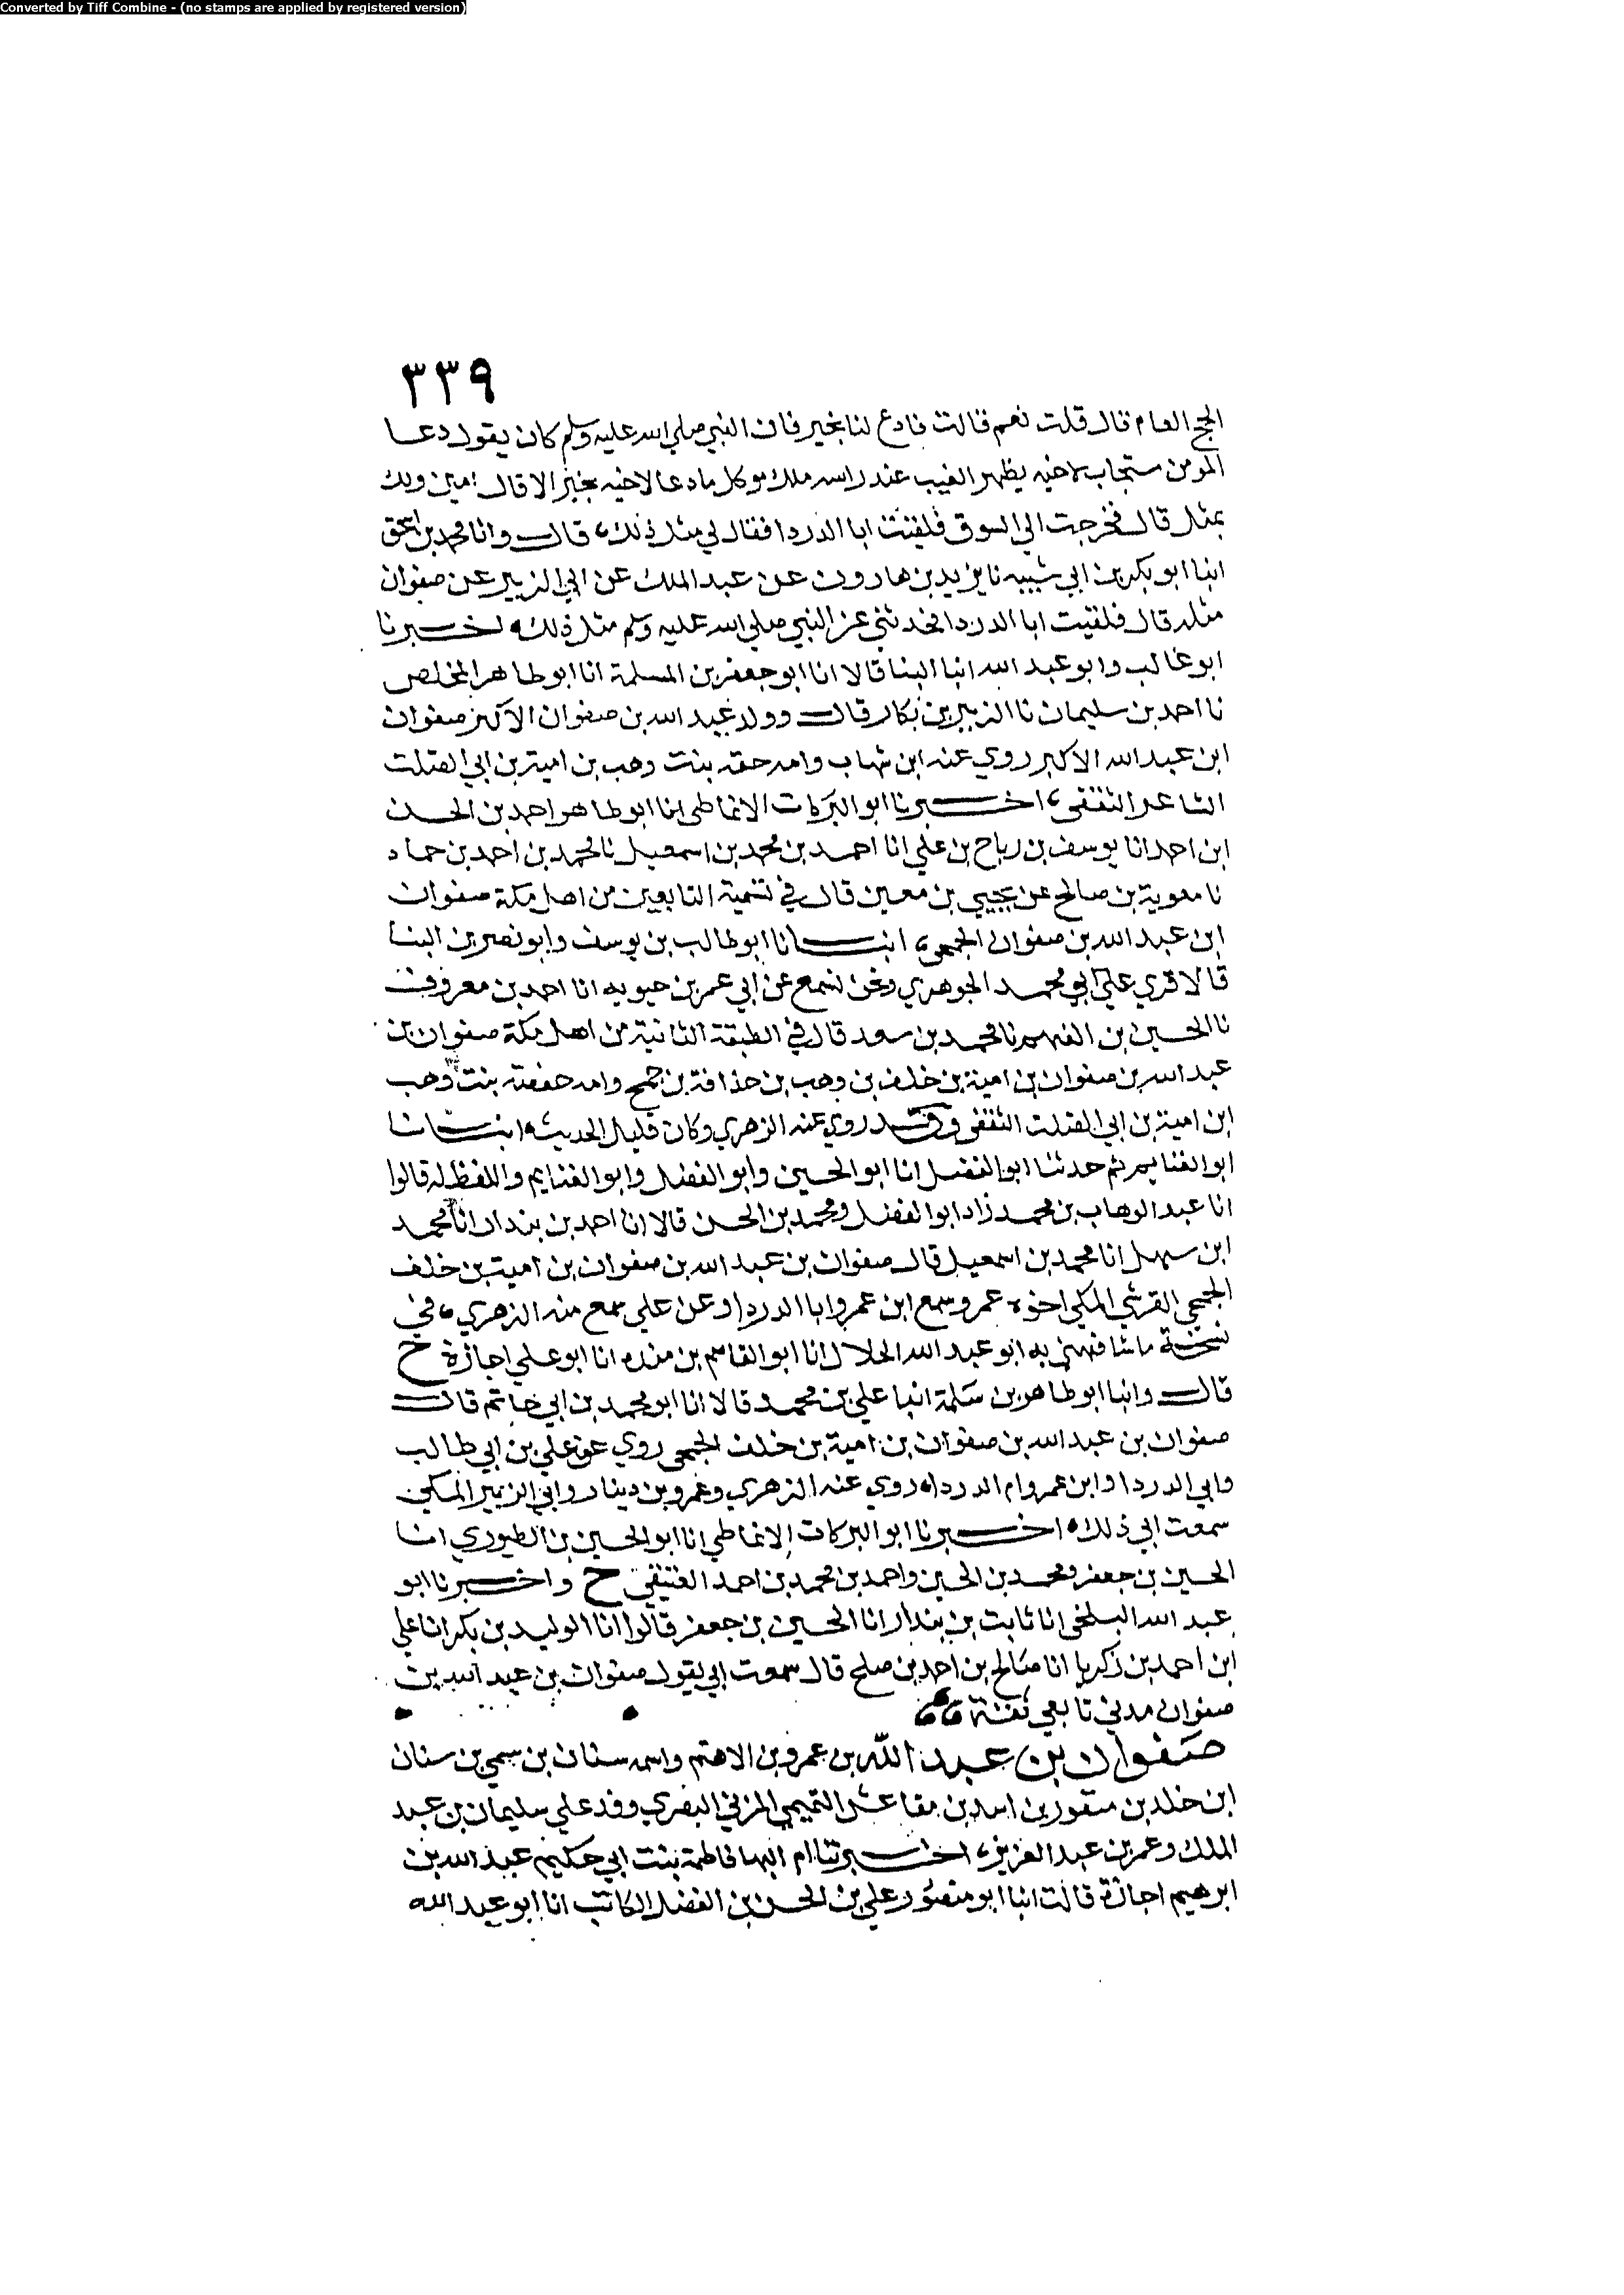 Converted by Tiff Combine - (no stamps are applied by registered version)
٣٣٩
الحج العام قال قلت نعم قالت فادع لنا بخير فان النبي صلي الله عليه وسلم كان يقول دعا
المومن مستجاب لاخيه بظهر الغيب عند راسه ملك موكل ما دعا لاخيه بخير الا قال امين ولك
بمثل قال فخرجت الي السوق فلقيت ابا الدردا فقال لي مثل ذلك، قال وانا محمد بن اسحق
انبا ابو بكر بن ابي شيبه نا يزيد بن هارون عن عبد الملك عن ابي الزبير عن صفوان
مثله قال فلقيت ابا الدردا فحدثني عن النبي صلي الله عليه وسلم مثل ذلك، اخبرنا
ابو غالب وابو عبد الله انبا البنا قالا انا ابو جعفر بن المسلمة انا ابو طاهر المخلص
نا احمد بن سليمان نا الزبير بن بكار قال وولد عبد الله بن صفوان الاكبر صفوان
ابن عبد الله الاكبر روي عنه ابن شهاب وامه حقه بنت وهب بن امية بن ابي الصلت
الشاعر الثقفي، اخبرنا ابو البركات الانماطي انا ابو طاهر احمد بن الحسن
ابن احمد انا يوسف بن رباح بن علي انا احمد بن محمد بن اسمعيل نا محمد بن احمد بن حماد
نا معوية بن صالح عن يحيي بن معين قال في تسمية التابعين من اهل مكة صفوان
ابن عبد الله بن صفوان الجمحي، انبانا ابو طالب بن يوسف وابو نصر بن البنا
قالا قري علي ابي محمد الجوهري ونحن نسمع عن ابي عمر بن حيويه انا احمد بن معروف
نا الحسين بن الفهم نا محمد بن سعد قال في الطبقة الثانية من اهل مكة صفوان بن
عبد الله بن صفوان بن امية بن خلف بن وهب بن حذافة بن جمح وامه حفصة بنت وهب
ابن امية بن ابي الصلت الثقفي وقد روي عنه الزهري وكان قليل الحديث، انبانا
ابو الغنايم ثم حدثنا ابو الفضل انا ابو الحسين وابو الفضل وابو الغنايم واللفظ له قالوا
انا عبد الوهاب بن محمد زاد ابو الفضل ومحمد بن الحسن قالا انا احمد بن بندار انا محمد
ابن سهل انا محمد بن اسمعيل قال صفوان بن عبد الله بن صفوان بن امية بن خلف
الجمحي القرشي المكي اخوه عمرو سمع ابن عمر وابا الدردا وعن علي سمع منه الزهري، في
نسخة ما شافهني به ابو عبد الله الخلال انا ابو القاسم بن منده انا ابو علي اجازة ح
قال وانبا ابو طاهر بن سلمة انبا علي بن محمد قالا انا ابو محمد بن ابي حاتم قال
صفوان بن عبد الله بن صفوان بن امية بن خلف الجمحي روي عن علي بن ابي طالب
وابي الدردا وابن عمر وام الدردا، روي عنه الزهري وعمرو بن دينار وابي الزبير المكي
سمعت ابي ذلك، اخبرنا ابو البركات الانماطي انا ابو الحسين بن الطيوري انا
الحسين بن جعفر ومحمد بن الحسين واحمد بن محمد بن احمد العتيقي ح واخبرنا ابو
عبد الله البلخي انا ثابت بن بندار انا الحسين بن جعفر قالوا انا الوليد بن بكر انا علي
ابن احمد بن زكريا انا صالح بن احمد بن صلح قال سمعت ابي يقول صفوان بن عبد الله بن
صفوان مدني تابعي ثقة
صفوان بن عبد الله بن عمرو بن الاهتم واسمه سنان بن سمي بن سنان
ابن خلد بن منقور بن اسد بن مقاعس التميمي المزني البصري وفد علي سليمان بن عبد
الملك وعمر بن عبد العزيز، اخبرتنا ام البها فاطمة بنت ابي حكيم عبد الله بن
ابرهيم اجازة قالت انبا ابو منصور علي بن الحسن بن الفضل الكاتب انا ابو عبد الله